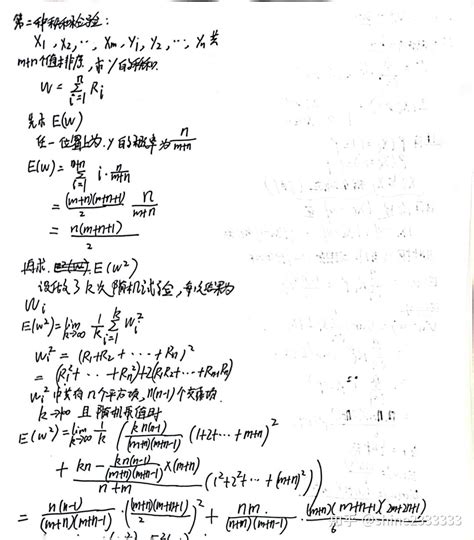 第二种秩和检验:
X₁, X₂, ⋯, Xm, Y₁, Y₂, ⋯, Yn 共
m+n个值排序,求Y的秩和.
W = ∑_{i=1}^{n} Ri
先求 E(W)
任一位置上为 Y 的概率为 n/(m+n)
E(W) = ∑_{i=1}^{m+n} i · n/(m+n)
= (m+n)(m+n+1)/2 · n/(m+n)
= n(m+n+1)/2
再求 E(W²)
设做了k次随机试验,每次结果为
Wi
E(W²) = lim_{k→∞} 1/k ∑_{i=1}^{k} Wi²
Wi² = (R₁+R₂+⋯+Rn)²
= (R₁²+⋯+Rn²)+2(R₁R₂+⋯+Rn-1Rn)
Wi² 中共有n个平方项, n(n-1)个交叉项.
k→∞ 且随机取值时
E(W²) = lim_{k→∞} 1/k ( kn(n-1)/((m+n)(m+n-1)) (1+2+⋯+m+n)²
+ (kn - kn(n-1)/((m+n)(m+n-1)) ×(m+n))/(n+m) (1²+2²+⋯+(m+n)²) )
= n(n-1)/((m+n)(m+n-1)) · ((m+n)(m+n+1)/2)² + nm/((m+n)(m+n-1)) · (m+n)(m+n+1)(2m+2n+1)/6
知乎 @chine2333333